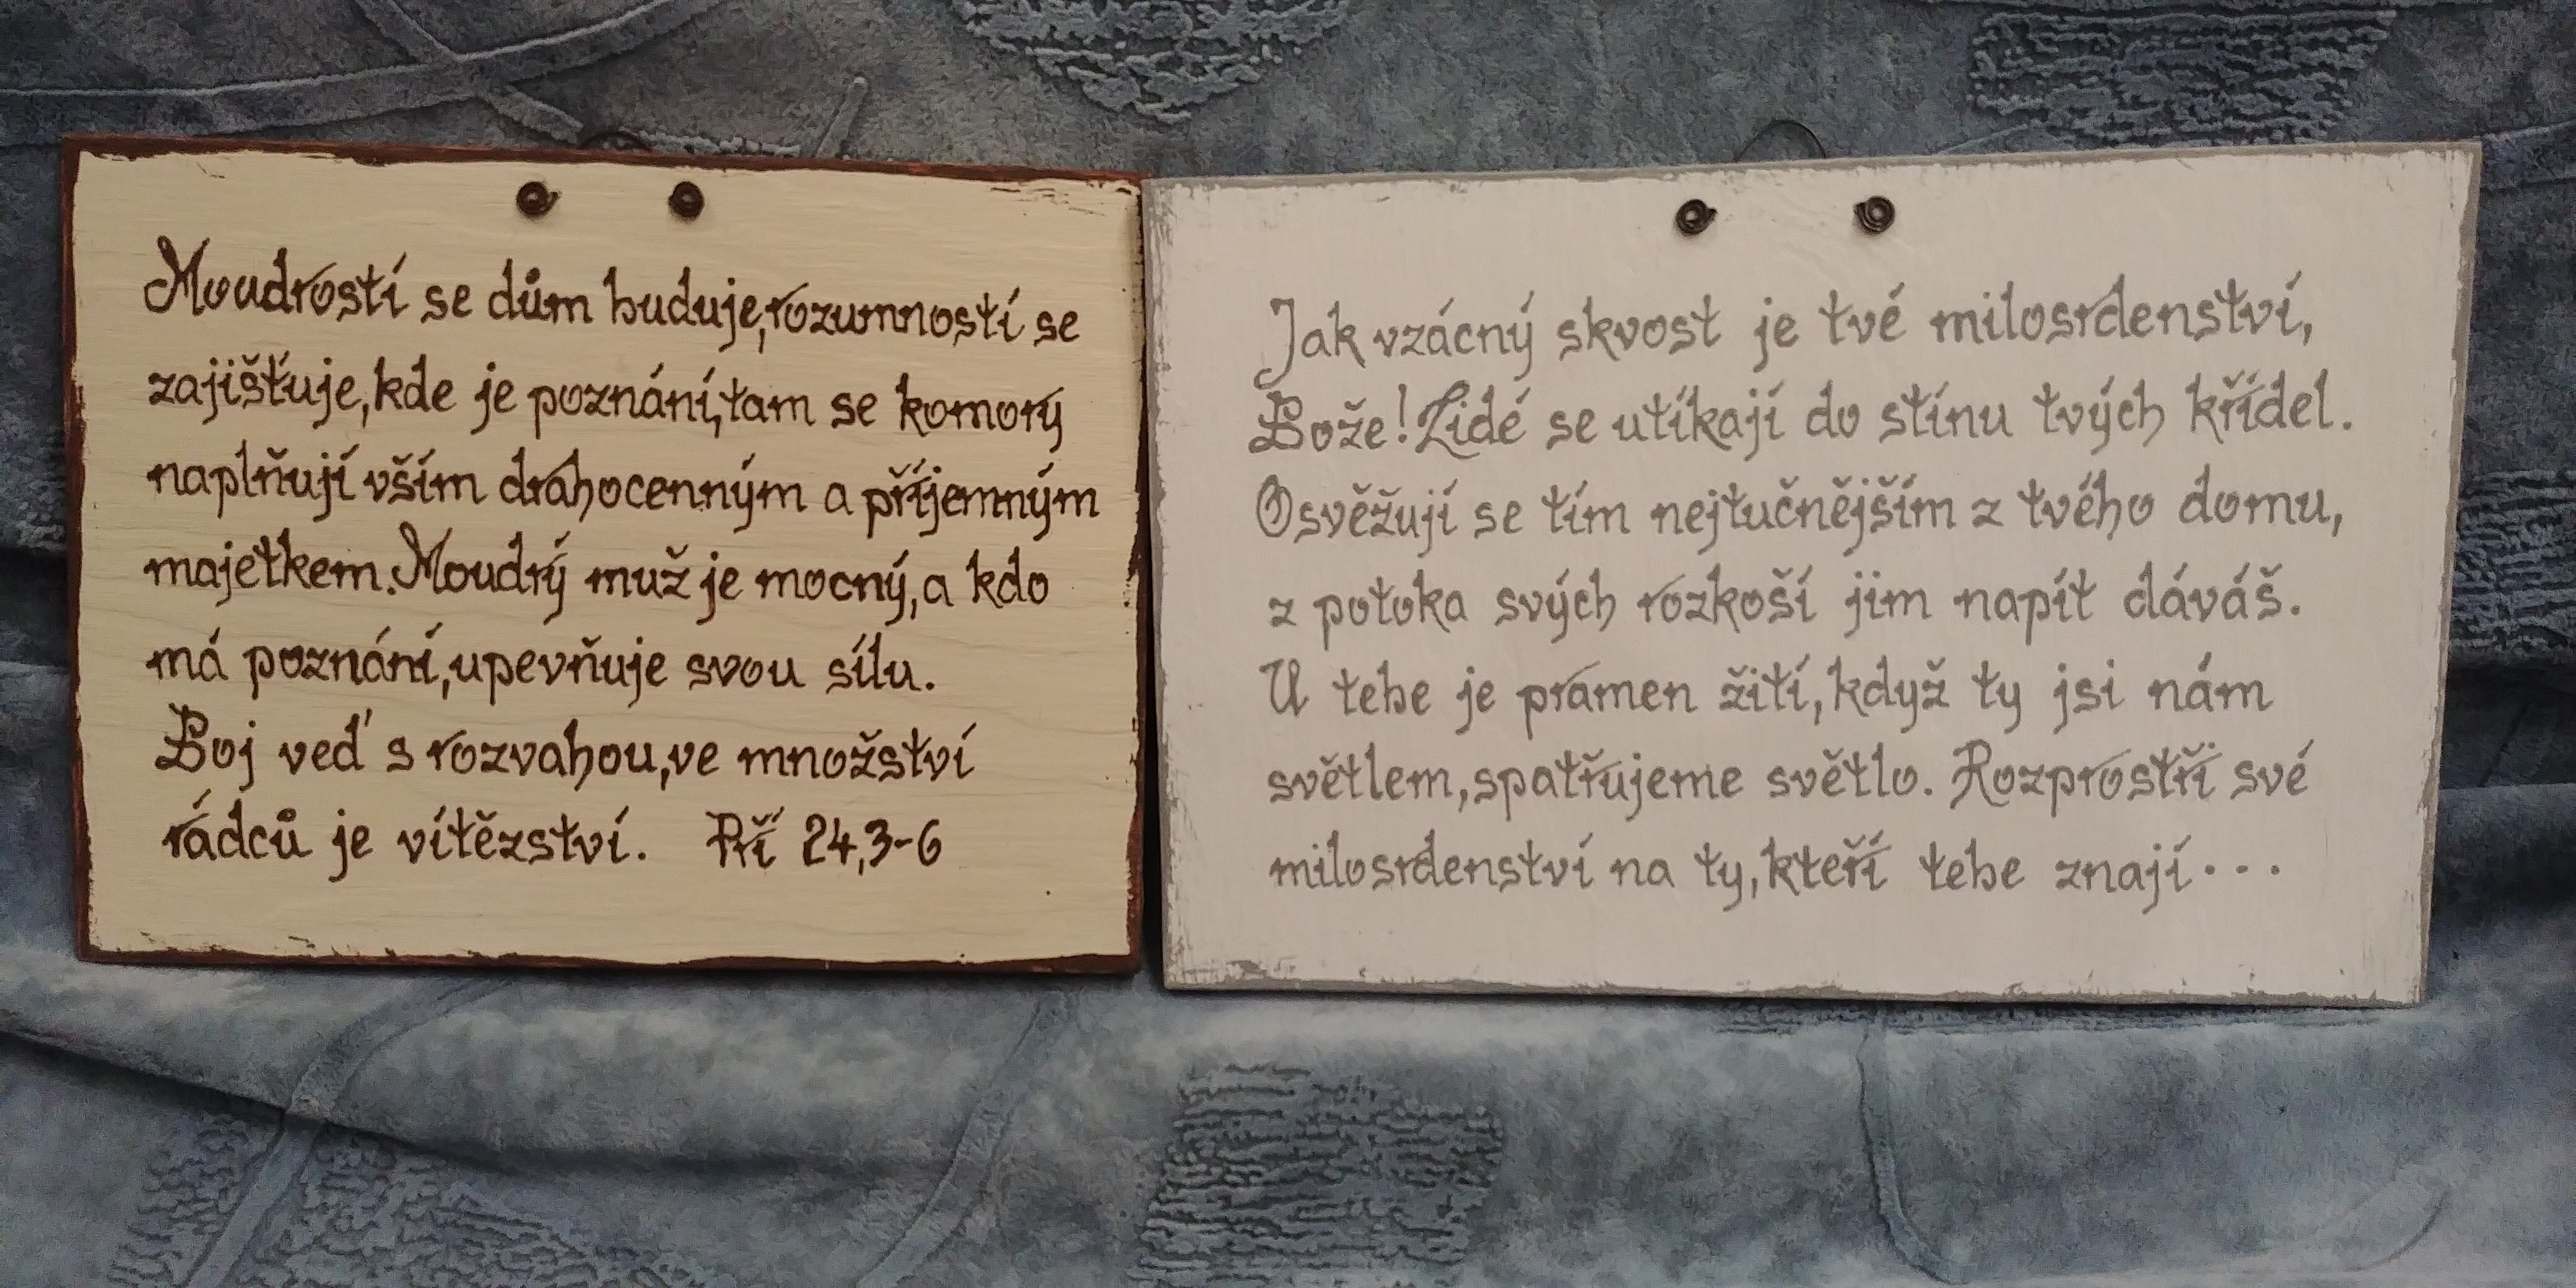 Moudrostí se dům buduje, rozumností se
zajišťuje, kde je poznání, tam se komory
naplňují vším drahocenným a příjemným
majetkem. Moudrý muž je mocný, a kdo
má poznání, upevňuje svou sílu.
Boj veď s rozvahou, ve množství
rádců je vítězství. Pří 24,3-6
Jak vzácný skvost je tvé milosrdenství,
Bože! Lidé se utíkají do stínu tvých křídel.
Osvěžují se tím nejtučnějším z tvého domu,
z potoka svých rozkoší jim napít dáváš.
U tebe je pramen žití, když ty jsi nám
světlem, spatřujeme světlo. Rozprostři své
milosrdenství na ty, kteří tebe znají...